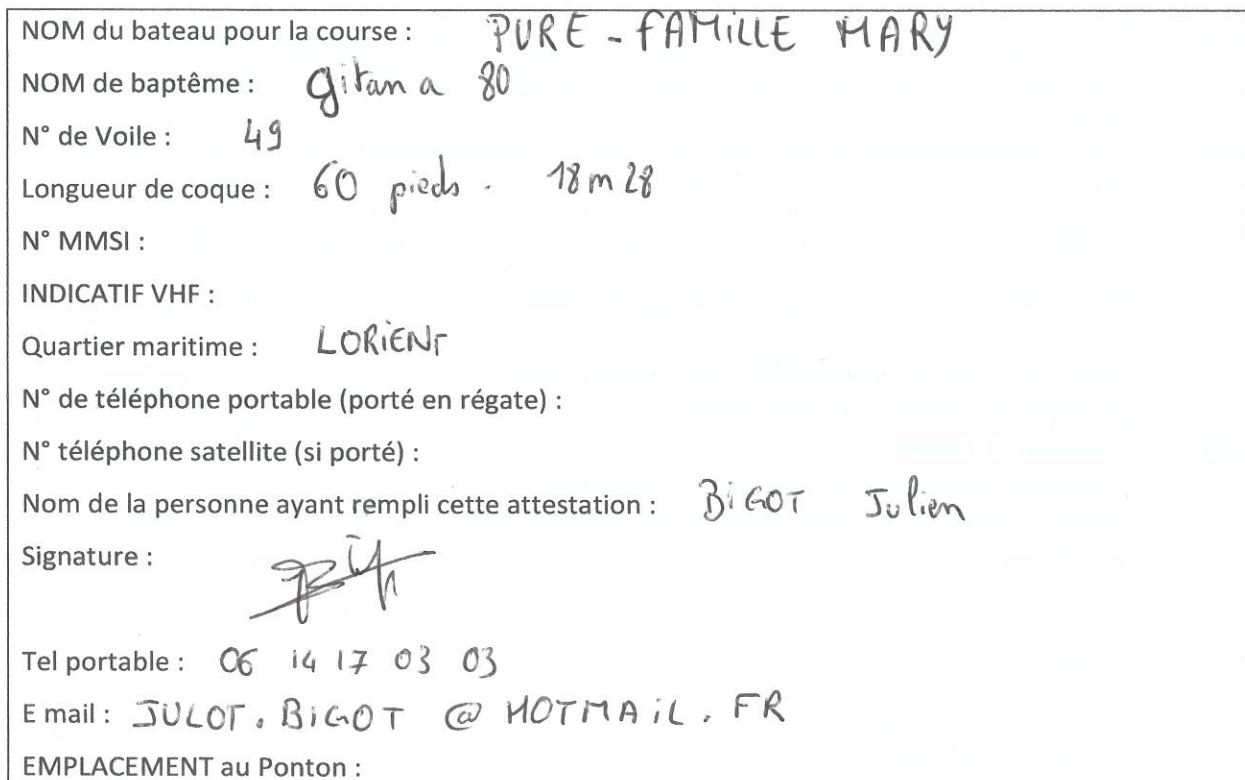 NOM du bateau pour la course : PURE - FAMiLLE MARY
NOM de baptême : gitana 80
N° de Voile : 49
Longueur de coque : 60 pieds . 18 m 28
N° MMSI :
INDICATIF VHF :
Quartier maritime : LORiENT
N° de téléphone portable (porté en régate) :
N° téléphone satellite (si porté) :
Nom de la personne ayant rempli cette attestation : BiGOT Julien
Signature :
Tel portable : 06 14 17 03 03
E mail : JULOT.BiGOT @ HOTMAiL.FR
EMPLACEMENT au Ponton :